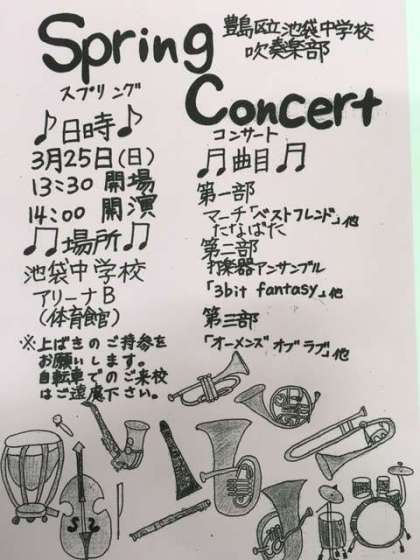 Spring
豊島区立池袋中学校
吹奏楽部
スプリング
Concert
コンサート
♪日時♪
3月25日(日)
13:30 開場
14:00 開演
♫場所♫
池袋中学校
アリーナB
(体育館)
※上ばきのご持参を
お願いします。
自転車でのご来校
はご遠慮下さい。
♬曲目♬
第一部
マーチ「ベストフレンド」他
たなばた
第二部
打楽器アンサンブル
「3bit fantasy」他
第三部
「オーメンズ オブ ラブ」他